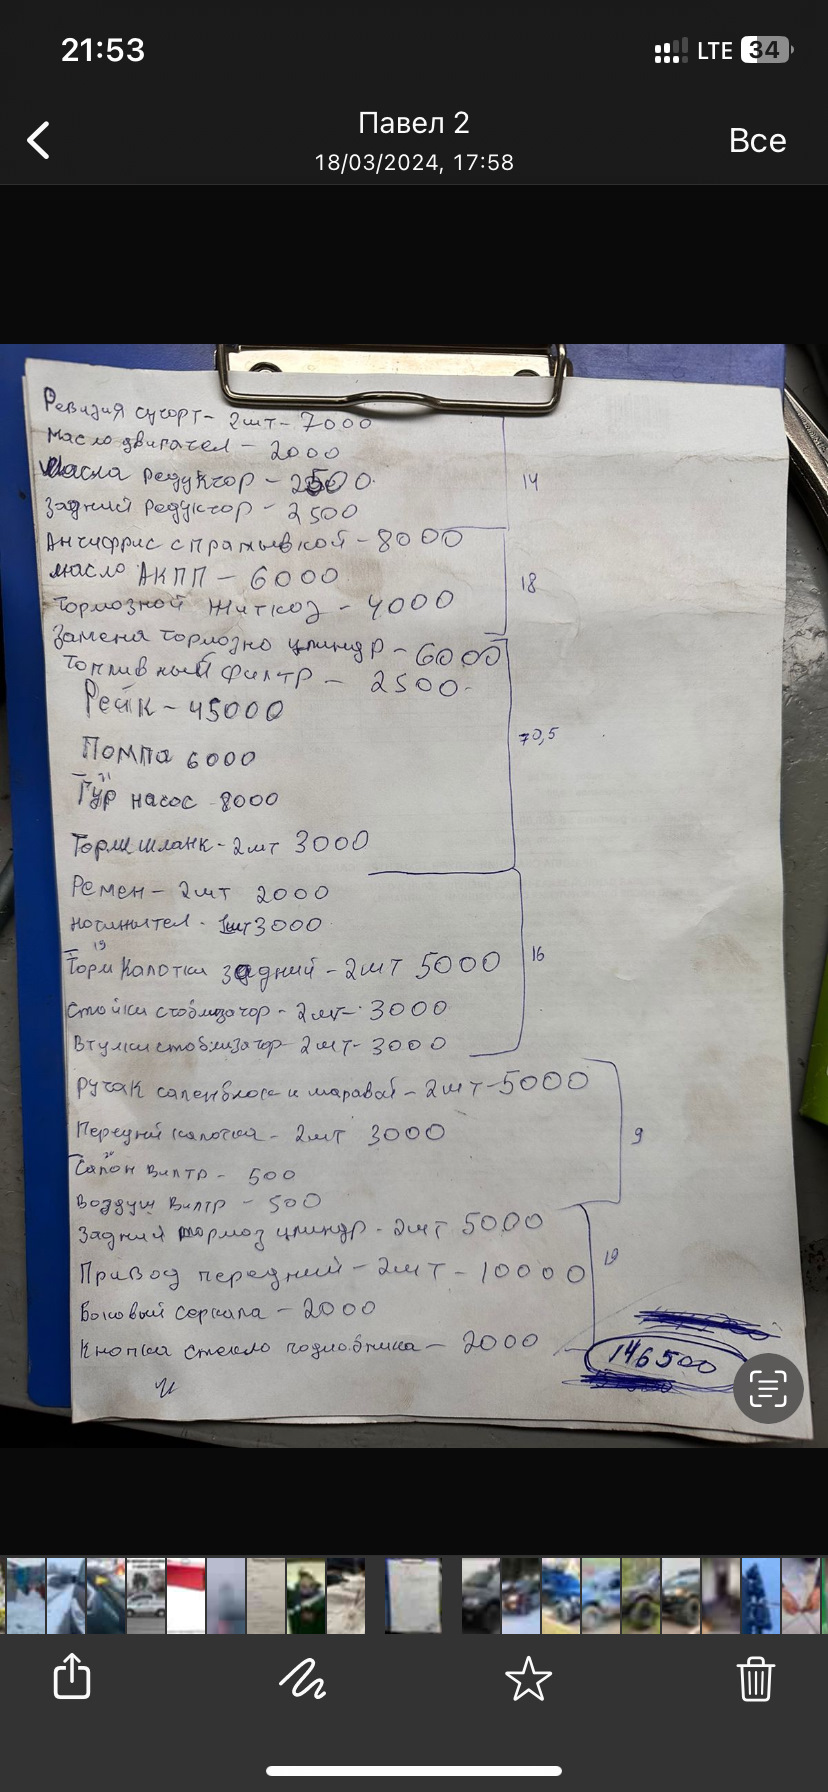 21:53
LTE 34
Павел 2
18/03/2024, 17:58
Все
Ревизия супорт- 2шт- 7000
масло двигател - 2000
масла редуктор - 2500
14
Задний редуктор - 2500
Антифрис с прамывкой - 8000
масло АКПП - 6000
18
Тормозной житкоз - 4000
Замена тормозно цлиндр - 6000
Топливный филтр - 2500
Рейк - 45000
70,5
Помпа 6000
Гур насос - 8000
Торм шланк - 2шт 3000
Ремен - 2шт 2000
натижител - 1шт 3000
16
Торм Калотки задний - 2шт 5000
стойки стоблизатор - 2шт - 3000
Втулки стоблизатор 2шт- 3000
Ручак саленблок и шаравой - 2шт - 5000
Передний калотка - 2шт 3000
9
Салон вилтр - 500
Воздуш вилтр - 500
Задний тормоз цлиндр - 2шт 5000
19
Привод передний - 2шт - 10000
Боковый серкала - 2000
Кнопка стекло подлобника - 2000
146500